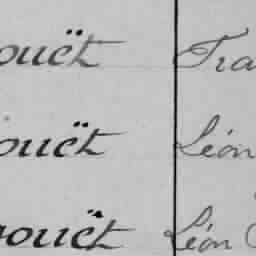 ouët Fra
ouët Léon
ouët Léon